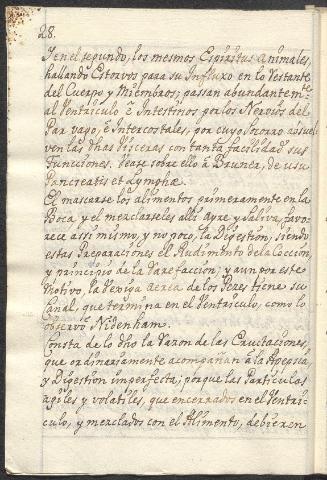 28.
Y en el segundo, los mesmos Espiritus animales,
hallando Estorvos para su Influxo en lo restante
del Cuerpo y Miembros; passan abundantemte
al Ventriculo è Intestinos por los Nervios del
Par vago, è Intercostales, por cuyo socorro
ven las dhas Visceras con tanta facilidad sus
Funciones. Vease sobre ello â Bruner, de usu
Pancreatis et Lymphæ.
El mascarse los alimentos primeramente en la
Boca, y el mezclarseles alli Ayre y Saliva, favo-
rece assimismo, y no poco, la Digestion, siendo
estas Preparaciones el Rudimento de la Coccion,
y principio de la rarefaccion; y aun por este
Motivo, la Vexiga aerea de los Peces tiene su
Canal, que termina en el Ventriculo, como lo
observò Nidenham.
Consta de lo dho la Razon de las Eructaciones,
que ordinariamente acompañan a la Apepsia
y Digestion imperfecta; porque las Particulas
agiles y volatiles, que encerrados en el Ventri-
culo, y mezclados con el Alimento, debieren